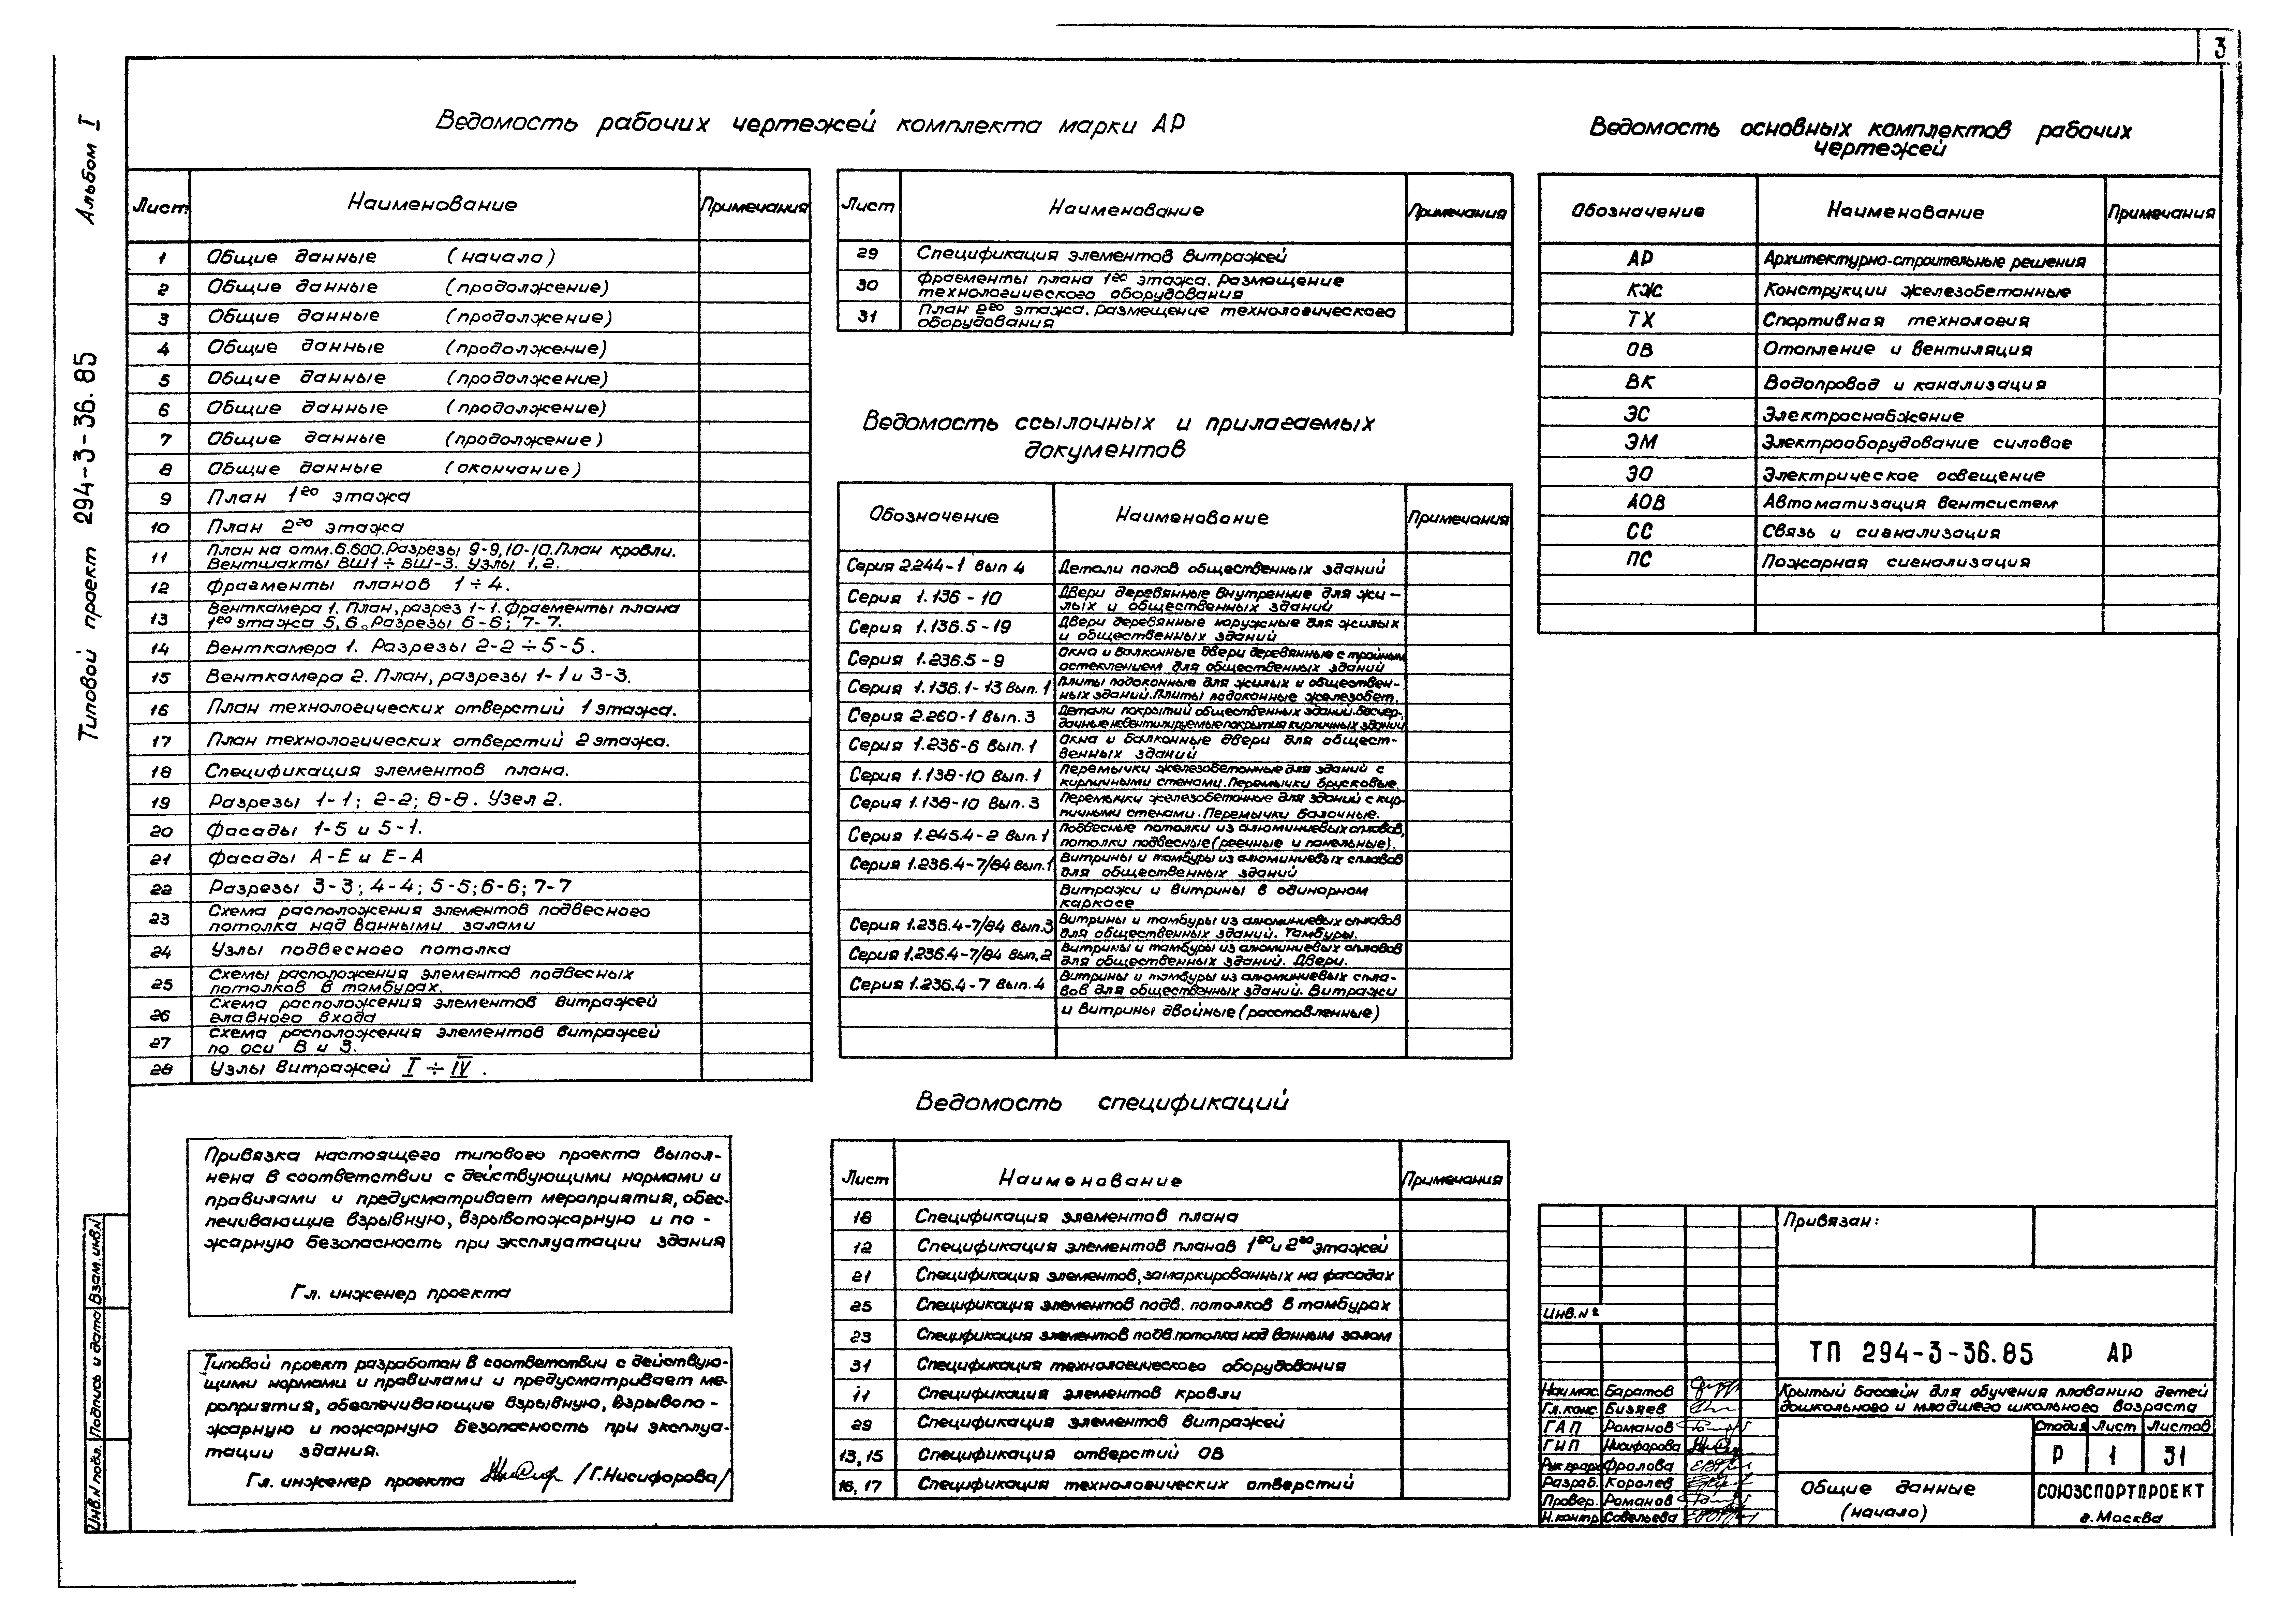 3
Альбом I
Типовой проект 294-3-36.85
Ведомость рабочих чертежей комплекта марки АР
Лист Наименование Примечания
1 Общие данные (начало)
2 Общие данные (продолжение)
3 Общие данные (продолжение)
4 Общие данные (продолжение)
5 Общие данные (продолжение)
6 Общие данные (продолжение)
7 Общие данные (продолжение)
8 Общие данные (окончание)
9 План 1го этажа
10 План 2го этажа
11 План на отм.6.600.Разрезы 9-9,10-10.План кровли.
Вентшахты ВШ1÷ВШ-3. Узлы 1,2.
12 Фрагменты планов 1÷4.
13 Венткамера 1. План, разрез 1-1. Фрагменты плана
1го этажа 5,6. Разрезы 6-6; 7-7.
14 Венткамера 1. Разрезы 2-2÷5-5.
15 Венткамера 2. План, разрезы 1-1 и 3-3.
16 План технологических отверстий 1 этажа.
17 План технологических отверстий 2 этажа.
18 Спецификация элементов плана.
19 Разрезы 1-1; 2-2; 8-8. Узел 2.
20 Фасады 1-5 и 5-1.
21 Фасады А-Е и Е-А
22 Разрезы 3-3; 4-4; 5-5; 6-6; 7-7
23 Схема расположения элементов подвесного
потолка над ванными залами
24 Узлы подвесного потолка
25 Схемы расположения элементов подвесных
потолков в тамбурах.
26 Схема расположения элементов витражей
главного входа
27 Схема расположения элементов витражей
по оси В и 3.
28 Узлы витражей I÷IV.
Лист Наименование Примечания
29 Спецификация элементов витражей
30 Фрагменты плана 1го этажа. Размещение
технологического оборудования
31 План 2го этажа. Размещение технологического
оборудования
Ведомость ссылочных и прилагаемых
документов
Обозначение Наименование Примечания
Серия 2.244-1 Вып 4 Детали полов общественных зданий
Серия 1.136-10 Двери деревянные внутренние для жи-
лых и общественных зданий
Серия 1.136.5-19 Двери деревянные наружные для жилых
и общественных зданий
Серия 1.236.5-9 Окна и балконные двери деревянные с тройным
остеклением для общественных зданий
Серия 1.136.1-13 вып.1 Плиты подоконные для жилых и обществен-
ных зданий. Плиты подоконные железобет.
Серия 2.260-1 Вып.3 Детали покрытий общественных зданий. Бесчер-
дачные невентилируемые покрытия кирпичных зданий
Серия 1.236-6 вып.1 Окна и балконные двери для общест-
венных зданий
Серия 1.138-10 Вып.1 Перемычки железобетонные для зданий с
кирпичными стенами. Перемычки брусковые.
Серия 1.138-10 Вып.3 Перемычки железобетонные для зданий с кир-
пичными стенами. Перемычки балочные.
Серия 1.245.4-2 Вып.1 Подвесные потолки из алюминиевых сплавов,
потолки подвесные (реечные и панельные).
Серия 1.236.4-7/84 Вып.1 Витрины и тамбуры из алюминиевых сплавов
для общественных зданий
Витражи и витрины в одинарном
каркасе
Серия 1.236.4-7/84 Вып.3 Витрины и тамбуры из алюминиевых сплавов
для общественных зданий. Тамбуры.
Серия 1.236.4-7/84 Вып.2 Витрины и тамбуры из алюминиевых сплавов
для общественных зданий. Двери.
Серия 1.236.4-7 Вып.4 Витрины и тамбуры из алюминиевых спла-
вов для общественных зданий. Витражи
и витрины двойные (расставленные)
Ведомость спецификаций
Лист Наименование Примечания
18 Спецификация элементов плана
12 Спецификация элементов планов 1го и 2го этажей
21 Спецификация элементов, замаркированных на фасадах
25 Спецификация элементов подв. потолков в тамбурах
23 Спецификация элементов подв.потолка над ванным залом
31 Спецификация технологического оборудования
11 Спецификация элементов кровли
29 Спецификация элементов витражей
13,15 Спецификация отверстий ОВ
16,17 Спецификация технологических отверстий
Ведомость основных комплектов рабочих
чертежей
Обозначение Наименование Примечания
АР Архитектурно-строительные решения
КЖ Конструкции железобетонные
ТХ Спортивная технология
ОВ Отопление и вентиляция
ВК Водопровод и канализация
ЭС Электроснабжение
ЭМ Электрооборудование силовое
ЭО Электрическое освещение
АОВ Автоматизация вентсистем
СС Связь и сигнализация
ПС Пожарная сигнализация
Привязка настоящего типового проекта выпол-
нена в соответствии с действующими нормами и
правилами и предусматривает мероприятия, обес-
печивающие взрывную, взрывопожарную и по-
жарную безопасность при эксплуатации здания
Гл. инженер проекта
Типовой проект разработан в соответствии с действую-
щими нормами и правилами и предусматривает ме-
роприятия, обеспечивающие взрывную, взрывопо-
жарную и пожарную безопасность при эксплуа-
тации здания.
Гл. инженер проекта /Г.Нисифорова/
Инв.N подл. Подпись и дата Взам. инв.N
Привязан:
Инв.N2
ТП 294-3-36.85 АР
Крытый бассейн для обучения плаванию детей
дошкольного и младшего школьного возраста
Нач.мас. Баратов
Гл.конс. Бизяев
ГАП Романов
ГИП Нисифорова
Рук.гр.арх Фролова
Разраб. Королев
Провер. Романов
Н.контр. Савельева
Стадия Лист Листов
Р 1 31
Общие данные
(начало)
СОЮЗСПОРТПРОЕКТ
г. Москва